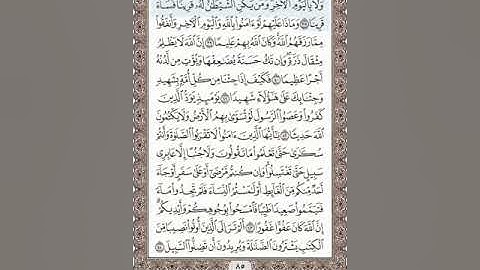 وَلَا بِالْيَوْمِ الْآخِرِ وَمَنْ يَكُنِ الشَّيْطَانُ لَهُ قَرِينًا فَسَاءَ
قَرِينًا ﴿٣٨﴾ وَمَاذَا عَلَيْهِمْ لَوْ آمَنُوا بِاللَّهِ وَالْيَوْمِ الْآخِرِ وَأَنْفَقُوا
مِمَّا رَزَقَهُمُ اللَّهُ وَكَانَ اللَّهُ بِهِمْ عَلِيمًا ﴿٣٩﴾ إِنَّ اللَّهَ لَا يَظْلِمُ
مِثْقَالَ ذَرَّةٍ وَإِنْ تَكُ حَسَنَةً يُضَاعِفْهَا وَيُؤْتِ مِنْ لَدُنْهُ
أَجْرًا عَظِيمًا ﴿٤٠﴾ فَكَيْفَ إِذَا جِئْنَا مِنْ كُلِّ أُمَّةٍ بِشَهِيدٍ
وَجِئْنَا بِكَ عَلَى هَؤُلَاءِ شَهِيدًا ﴿٤١﴾ يَوْمَئِذٍ يَوَدُّ الَّذِينَ
كَفَرُوا وَعَصَوُا الرَّسُولَ لَوْ تُسَوَّى بِهِمُ الْأَرْضُ وَلَا يَكْتُمُونَ
اللَّهَ حَدِيثًا ﴿٤٢﴾ يَا أَيُّهَا الَّذِينَ آمَنُوا لَا تَقْرَبُوا الصَّلَاةَ وَأَنْتُمْ
سُكَارَى حَتَّى تَعْلَمُوا مَا تَقُولُونَ وَلَا جُنُبًا إِلَّا عَابِرِي
سَبِيلٍ حَتَّى تَغْتَسِلُوا وَإِنْ كُنْتُمْ مَرْضَى أَوْ عَلَى سَفَرٍ أَوْ جَاءَ
أَحَدٌ مِنْكُمْ مِنَ الْغَائِطِ أَوْ لَامَسْتُمُ النِّسَاءَ فَلَمْ تَجِدُوا مَاءً
فَتَيَمَّمُوا صَعِيدًا طَيِّبًا فَامْسَحُوا بِوُجُوهِكُمْ وَأَيْدِيكُمْ
إِنَّ اللَّهَ كَانَ عَفُوًّا غَفُورًا ﴿٤٣﴾ أَلَمْ تَرَ إِلَى الَّذِينَ أُوتُوا نَصِيبًا مِنَ
الْكِتَابِ يَشْتَرُونَ الضَّلَالَةَ وَيُرِيدُونَ أَنْ تَضِلُّوا السَّبِيلَ ﴿٤٤﴾
٨٥